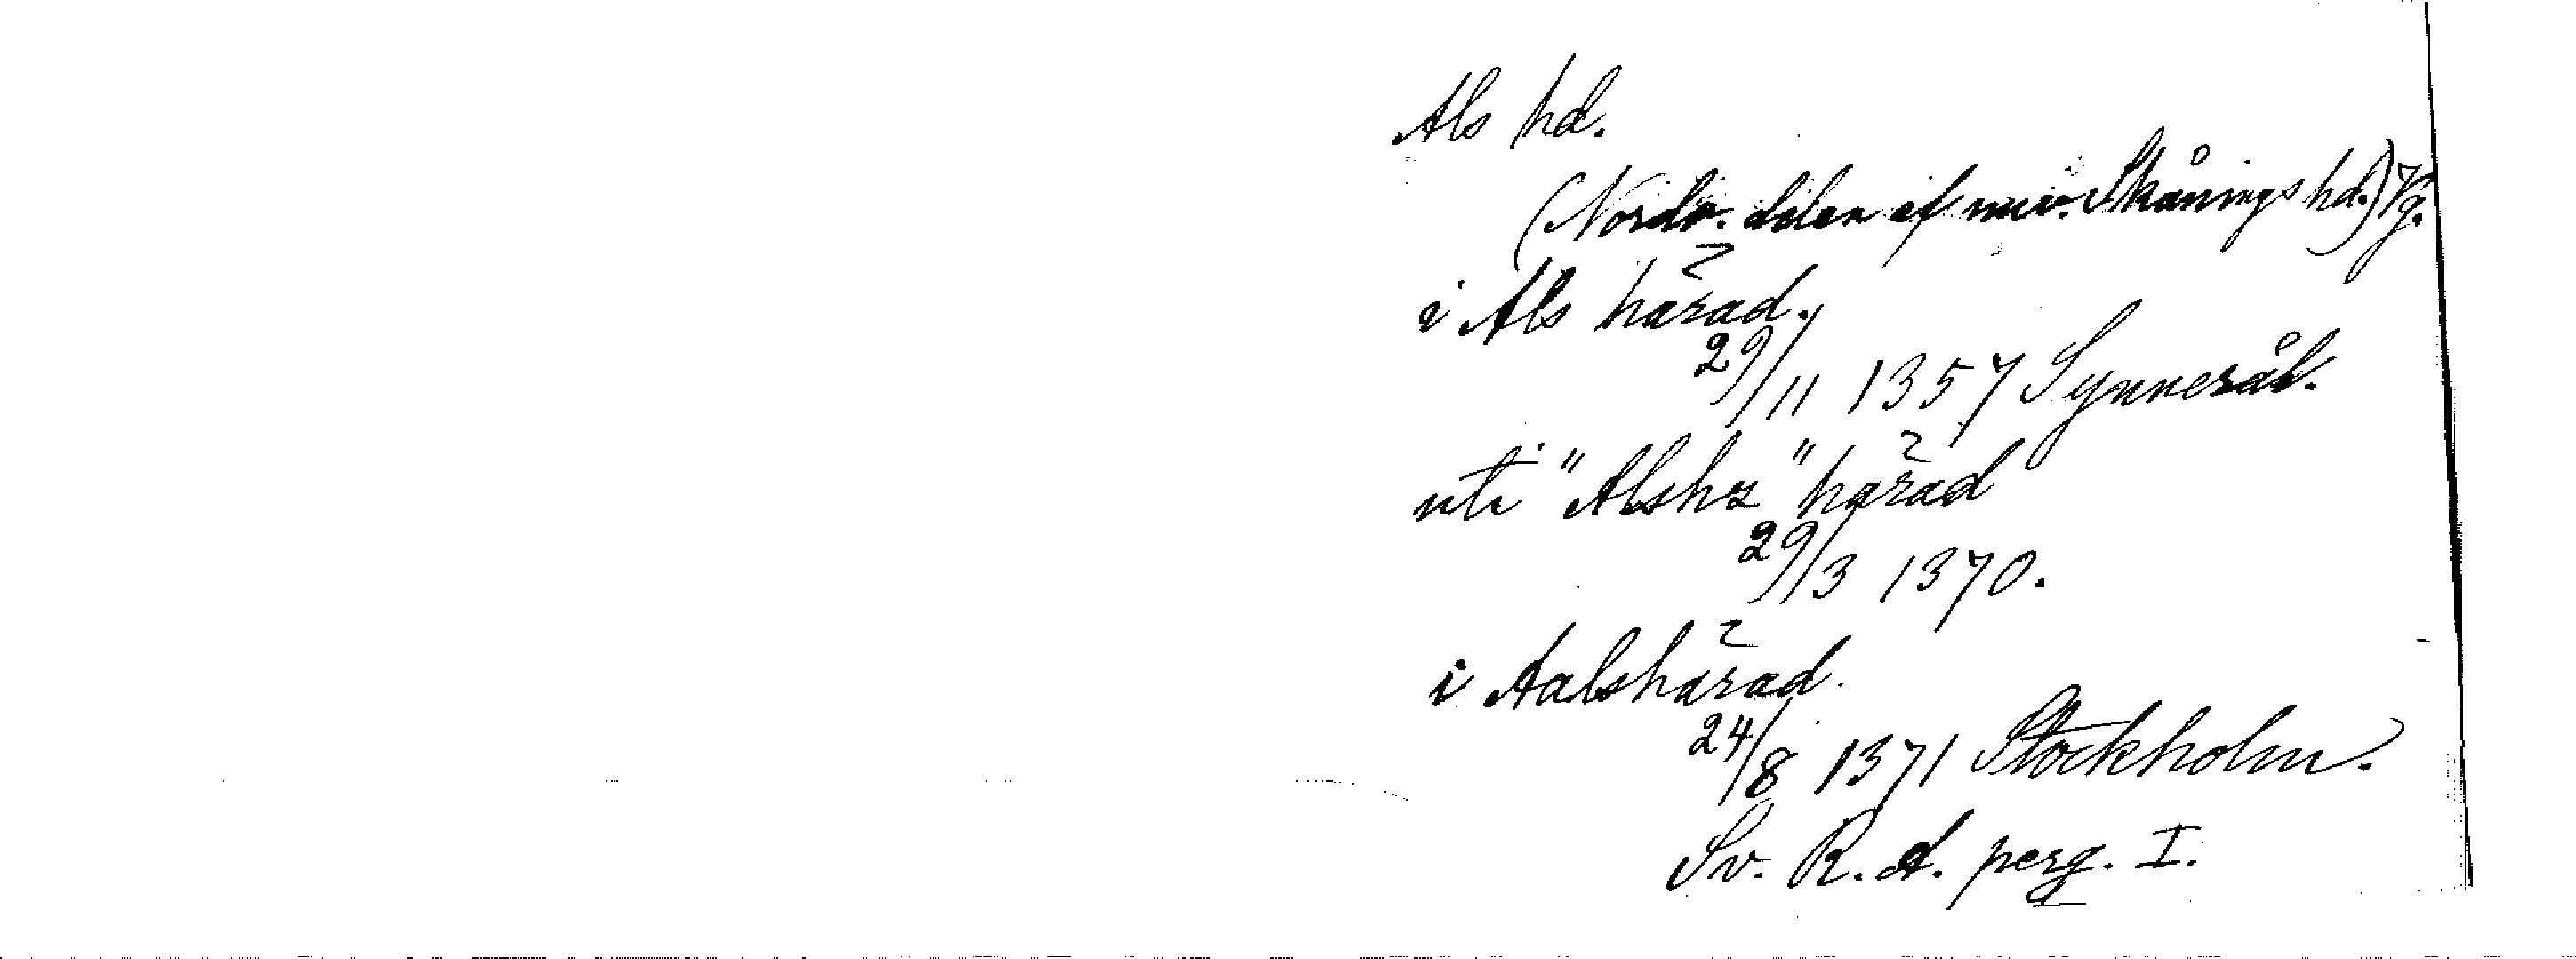 Als hd.
(Nordv. delen af nuv. Skånings hd.) Vg.
i Als hárad.
29/11 1357 Synneràl.
uti "Alshz" hárad
29/3 1370.
i Aalshárad.
24/8 1371 Stockholm.
Sv. R. A. perg. I.